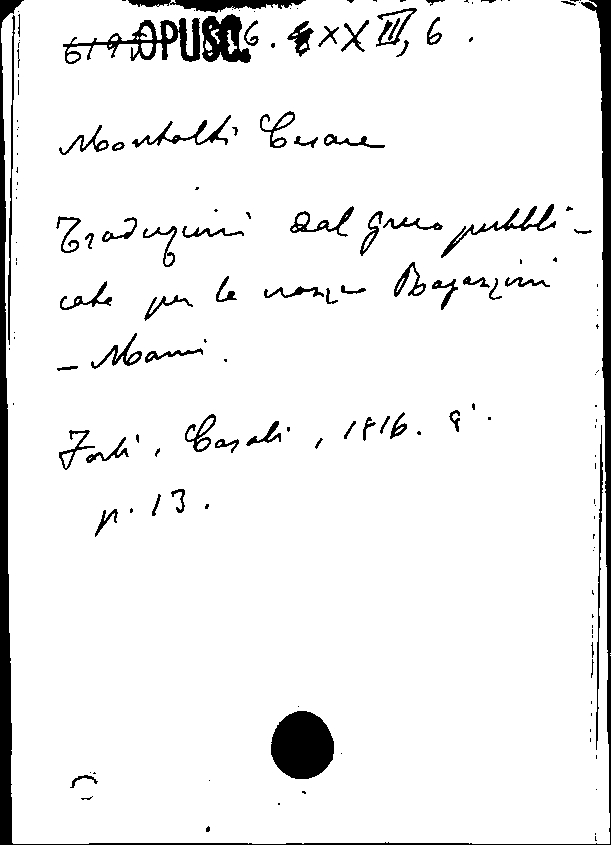 OPUSC. 6. XXIII, 6.
Montalti Cesare
Traduzioni dal greco pubbli-
cate per le nozze Bagazzini
- Manni.
Forlì, Casali, 1816. 8°.
p. 13.